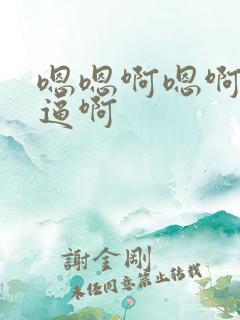 嗯嗯啊嗯啊
逼啊
謝金剛
未经同意禁止转载